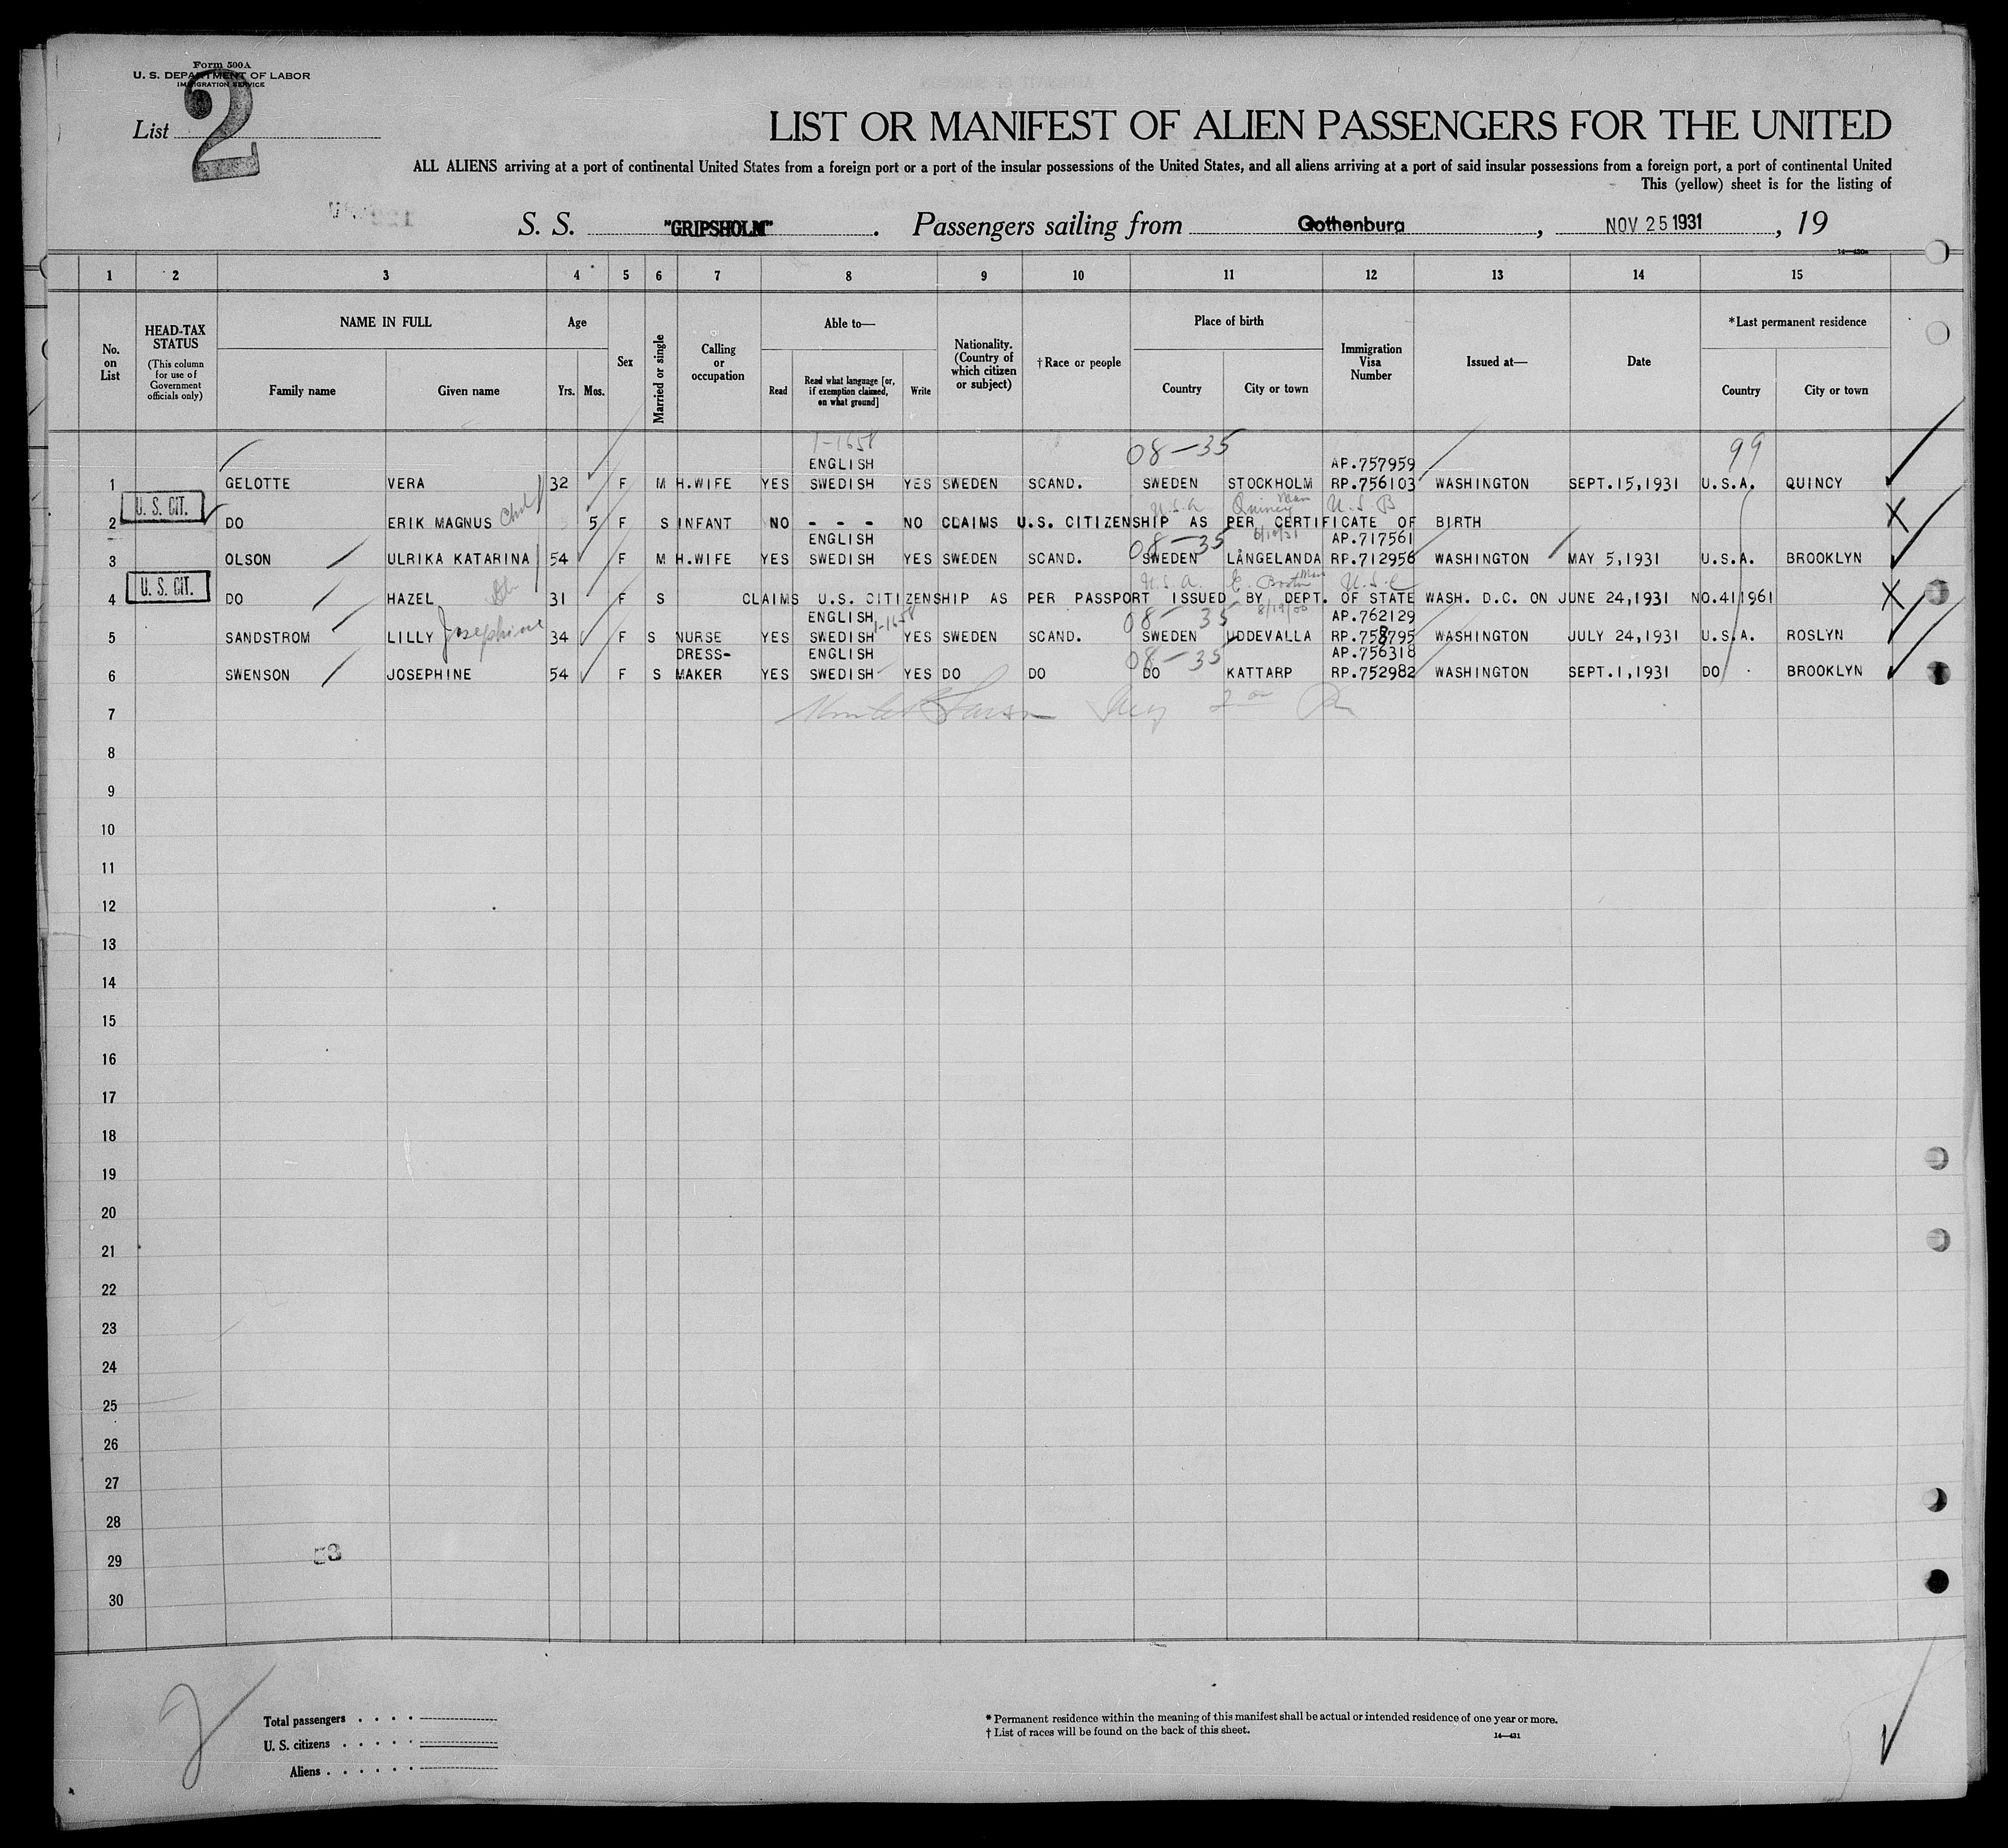 Form 500A
U. S. DEPARTMENT OF LABOR
IMMIGRATION SERVICE
List 2
LIST OR MANIFEST OF ALIEN PASSENGERS FOR THE UNITED
ALL ALIENS arriving at a port of continental United States from a foreign port or a port of the insular possessions of the United States, and all aliens arriving at a port of said insular possessions from a foreign port, a port of continental United
This (yellow) sheet is for the listing of
S. S. "GRIPSHOLM". Passengers sailing from Gothenburg, NOV 25 1931, 19
14—430a
1 2 3 4 5 6 7 8 9 10 11 12 13 14 15
No. on List
HEAD-TAX STATUS (This column for use of Government officials only)
NAME IN FULL
Family name Given name
Age
Yrs. Mos.
Sex
Married or single
Calling or occupation
Able to—
Read Read what language [or, if exemption claimed, on what ground] Write
Nationality. (Country of which citizen or subject)
† Race or people
Place of birth
Country City or town
Immigration Visa Number
Issued at—
Date
*Last permanent residence
Country City or town
1-1658 08-35 99
ENGLISH AP.757959
1 GELOTTE VERA 32 F M H.WIFE YES SWEDISH YES SWEDEN SCAND. SWEDEN STOCKHOLM RP.756103 WASHINGTON SEPT.15,1931 U.S.A. QUINCY
U. S. CIT. U.S.A Quincy Mass U.S.B
2 DO ERIK MAGNUS 5 F S INFANT NO - - - NO CLAIMS U.S. CITIZENSHIP AS PER CERTIFICATE OF BIRTH X
ENGLISH 08-35 6/10/31 AP.717561
3 OLSON ULRIKA KATARINA 54 F M H.WIFE YES SWEDISH YES SWEDEN SCAND. SWEDEN LÅNGELANDA RP.712956 WASHINGTON MAY 5,1931 U.S.A. BROOKLYN
U. S. CIT. U.S.A. E. Boston Mass U.S.C
4 DO HAZEL 31 F S CLAIMS U.S. CITIZENSHIP AS PER PASSPORT ISSUED BY DEPT. OF STATE WASH. D.C. ON JUNE 24,1931 NO.411961 X
ENGLISH 1-1658 08-35 8/19/00 AP.762129
5 SANDSTROM LILLY Josephine 34 F S NURSE YES SWEDISH YES SWEDEN SCAND. SWEDEN UDDEVALLA RP.758795 WASHINGTON JULY 24,1931 U.S.A. ROSLYN
DRESS- ENGLISH 08-35 AP.756318
6 SWENSON JOSEPHINE 54 F S MAKER YES SWEDISH YES DO DO DO KATTARP RP.752982 WASHINGTON SEPT.1,1931 DO BROOKLYN
7
8
9
10
11
12
13
14
15
16
17
18
19
20
21
22
23
24
25
26
27
28
29
30
2
Total passengers
U. S. citizens
Aliens
* Permanent residence within the meaning of this manifest shall be actual or intended residence of one year or more.
† List of races will be found on the back of this sheet.
14—431